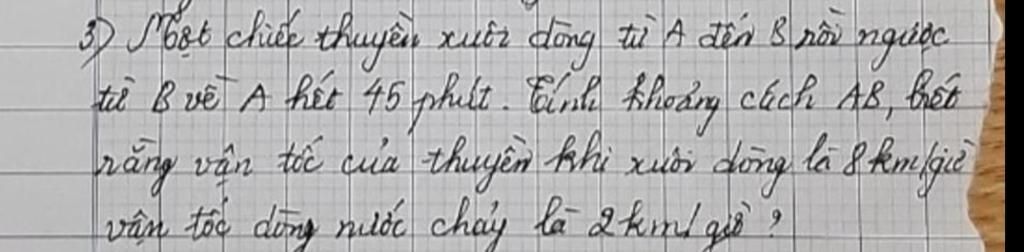 3) Một chiếc thuyền xuôi dòng từ A đến B rồi ngược
từ B về A hết 45 phút. Tính khoảng cách AB, biết
rằng vận tốc của thuyền khi xuôi dòng là 8 km/giờ
vận tốc dòng nước chảy là 2 km/giờ?